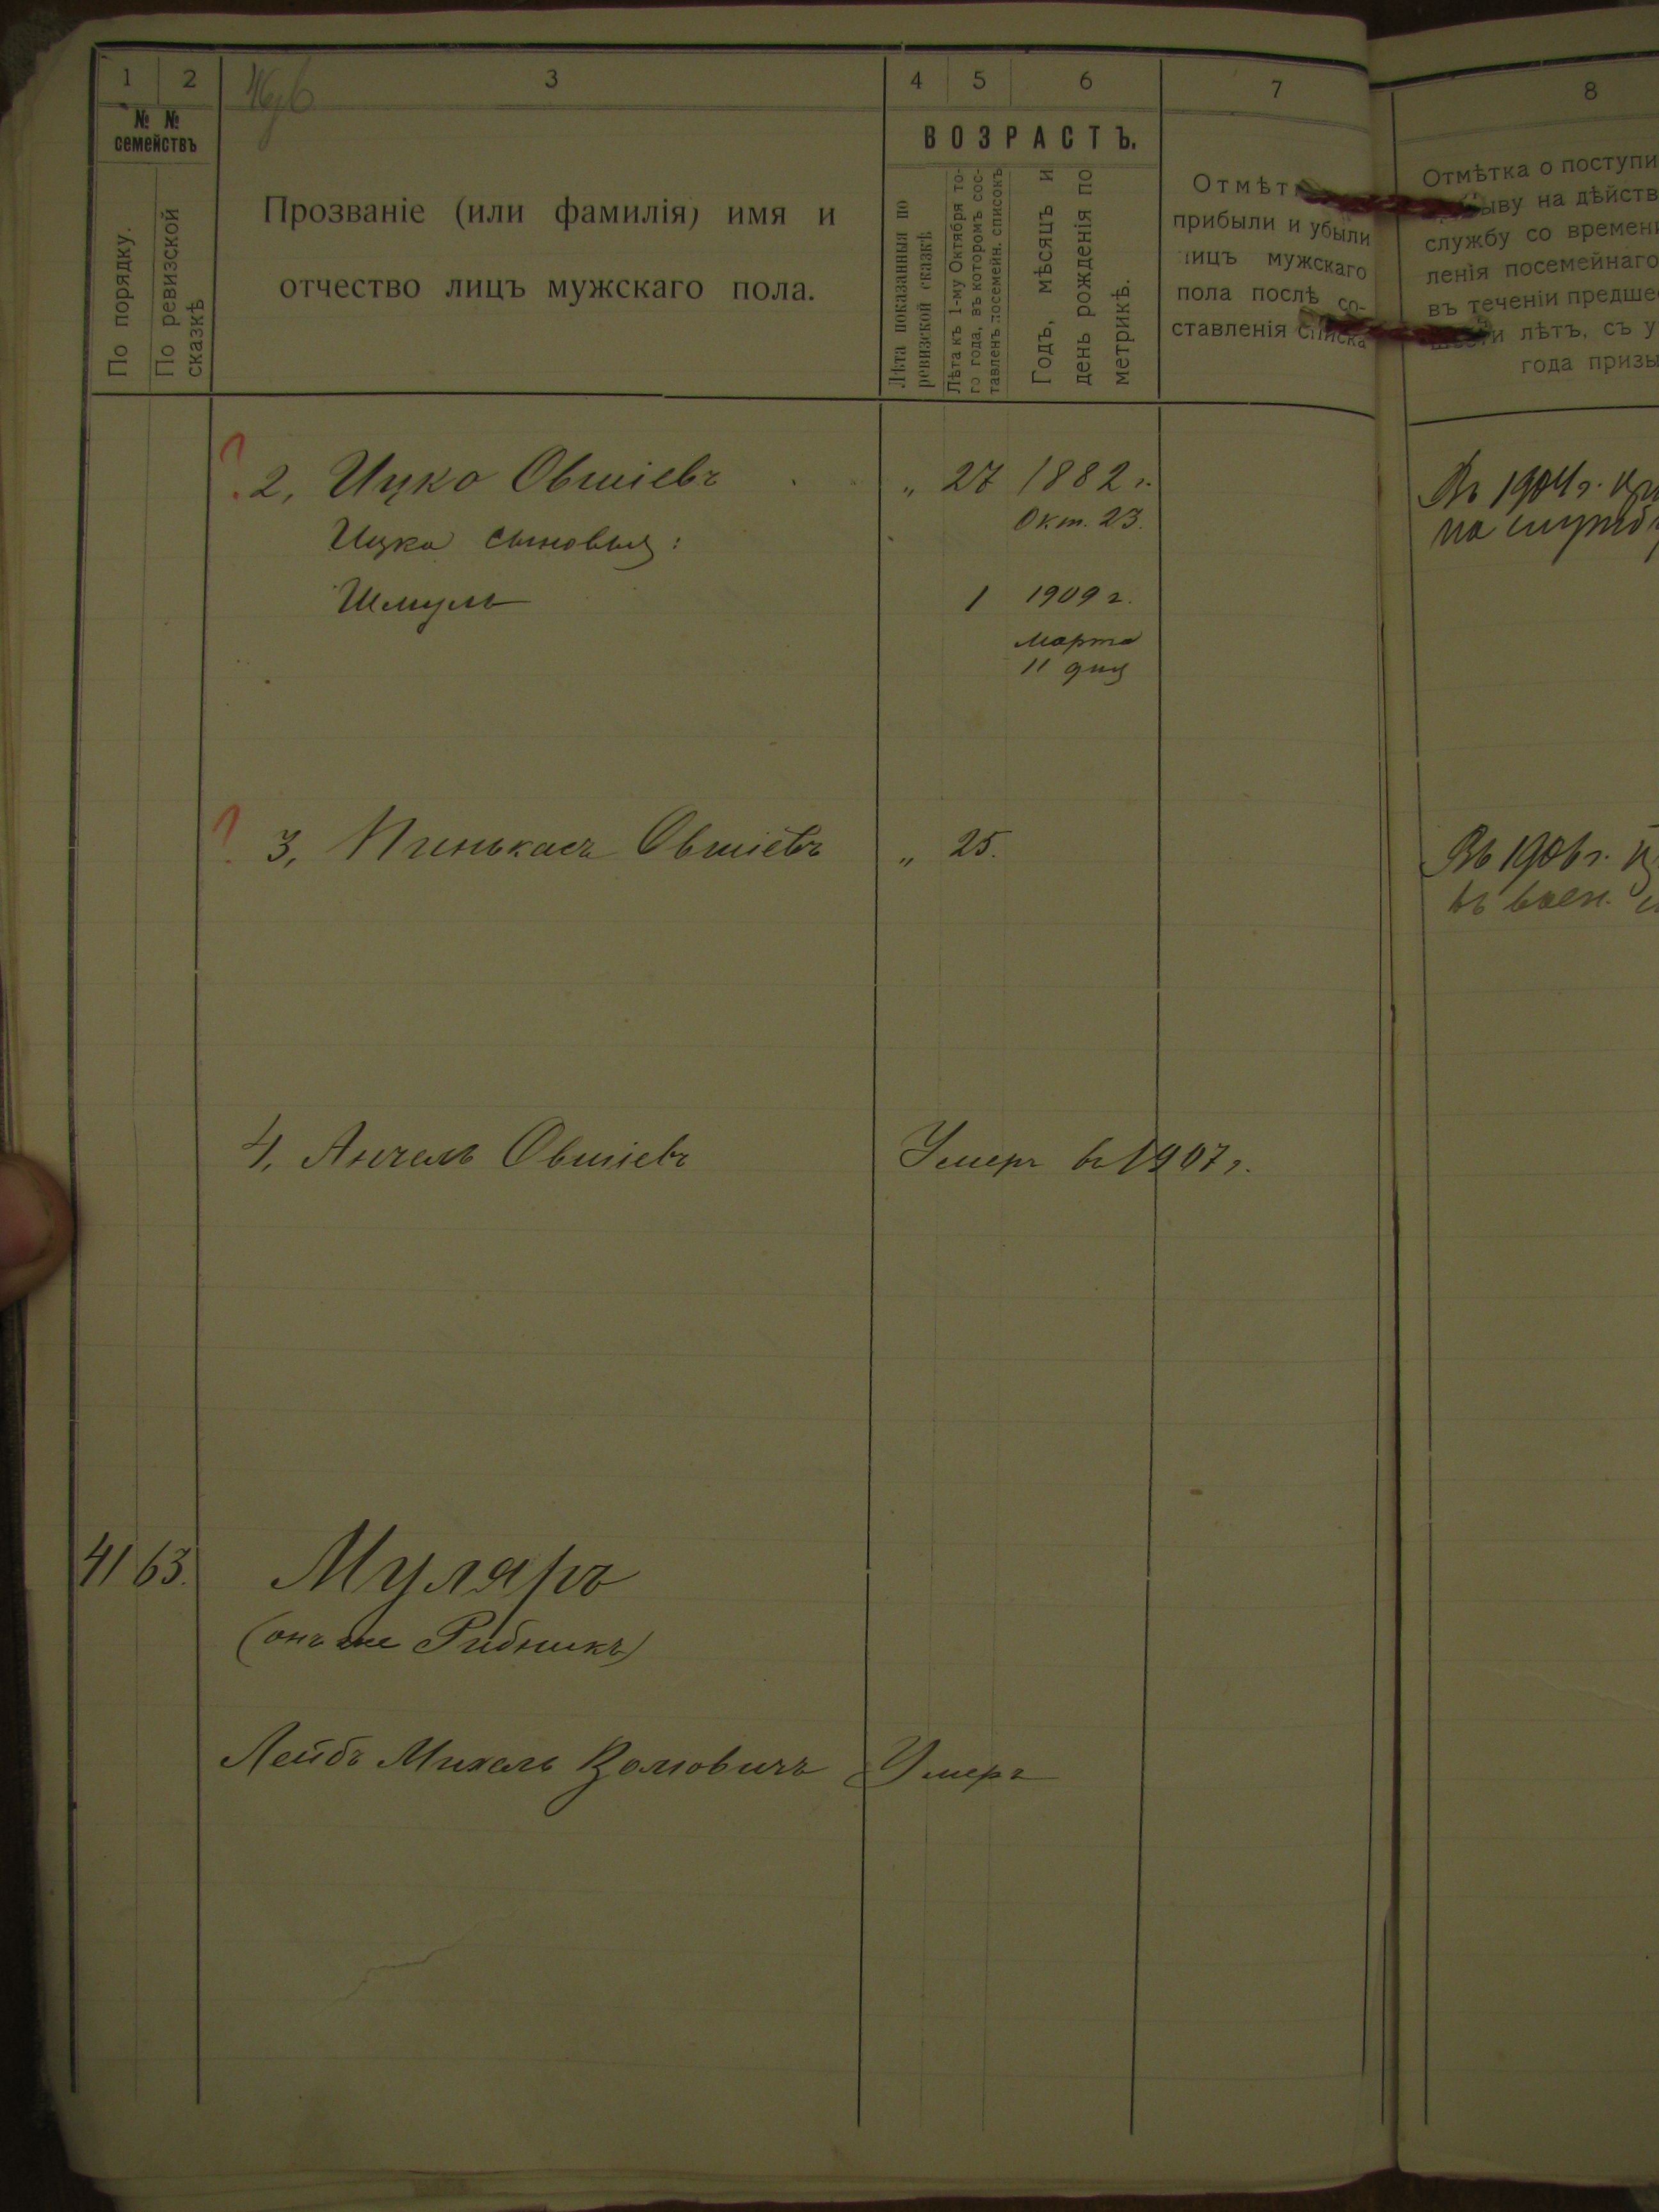 1 2 3 4 5 6 7 8
№ № семействъ
По порядку.
По ревизской сказкѣ
Прозваніе (или фамилія) имя и
отчество лицъ мужскаго пола.
ВОЗРАСТЪ.
Лѣта показанныя по
ревизской сказкѣ
Лѣта къ 1-му Октября то-
го года, въ которомъ сос-
тавленъ посемейн. списокъ
Годъ, мѣсяцъ и
день рожденія по
метрикѣ.
Отмѣт
прибыли и убыли
лицъ мужскаго
пола послѣ со-
ставленія списка
Отмѣтка о поступи
ыву на дѣйств
службу со времени
ленія посемейнаго
въ теченіи предше
шести лѣтъ, съ у
года призы
? 2, Ицко Овшіевъ „ 27 1882 г. Въ 1904 г.
Окт. 23.
Ицка сыновья:
Шмуль 1 1909 г.
Марта
11 дня
? 3, Пинькасъ Овшіевъ „ 25. Въ 1906 г.
въ воен.
4, Анчель Овшіевъ Умеръ въ 1907 г.
41 63. Муляръ
(онъ же Рибникъ)
Лейбъ Михель Волювичъ Умеръ